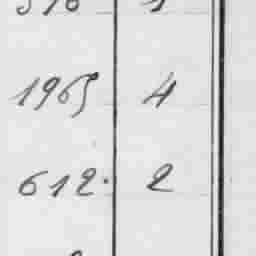 1965 4
612. 2